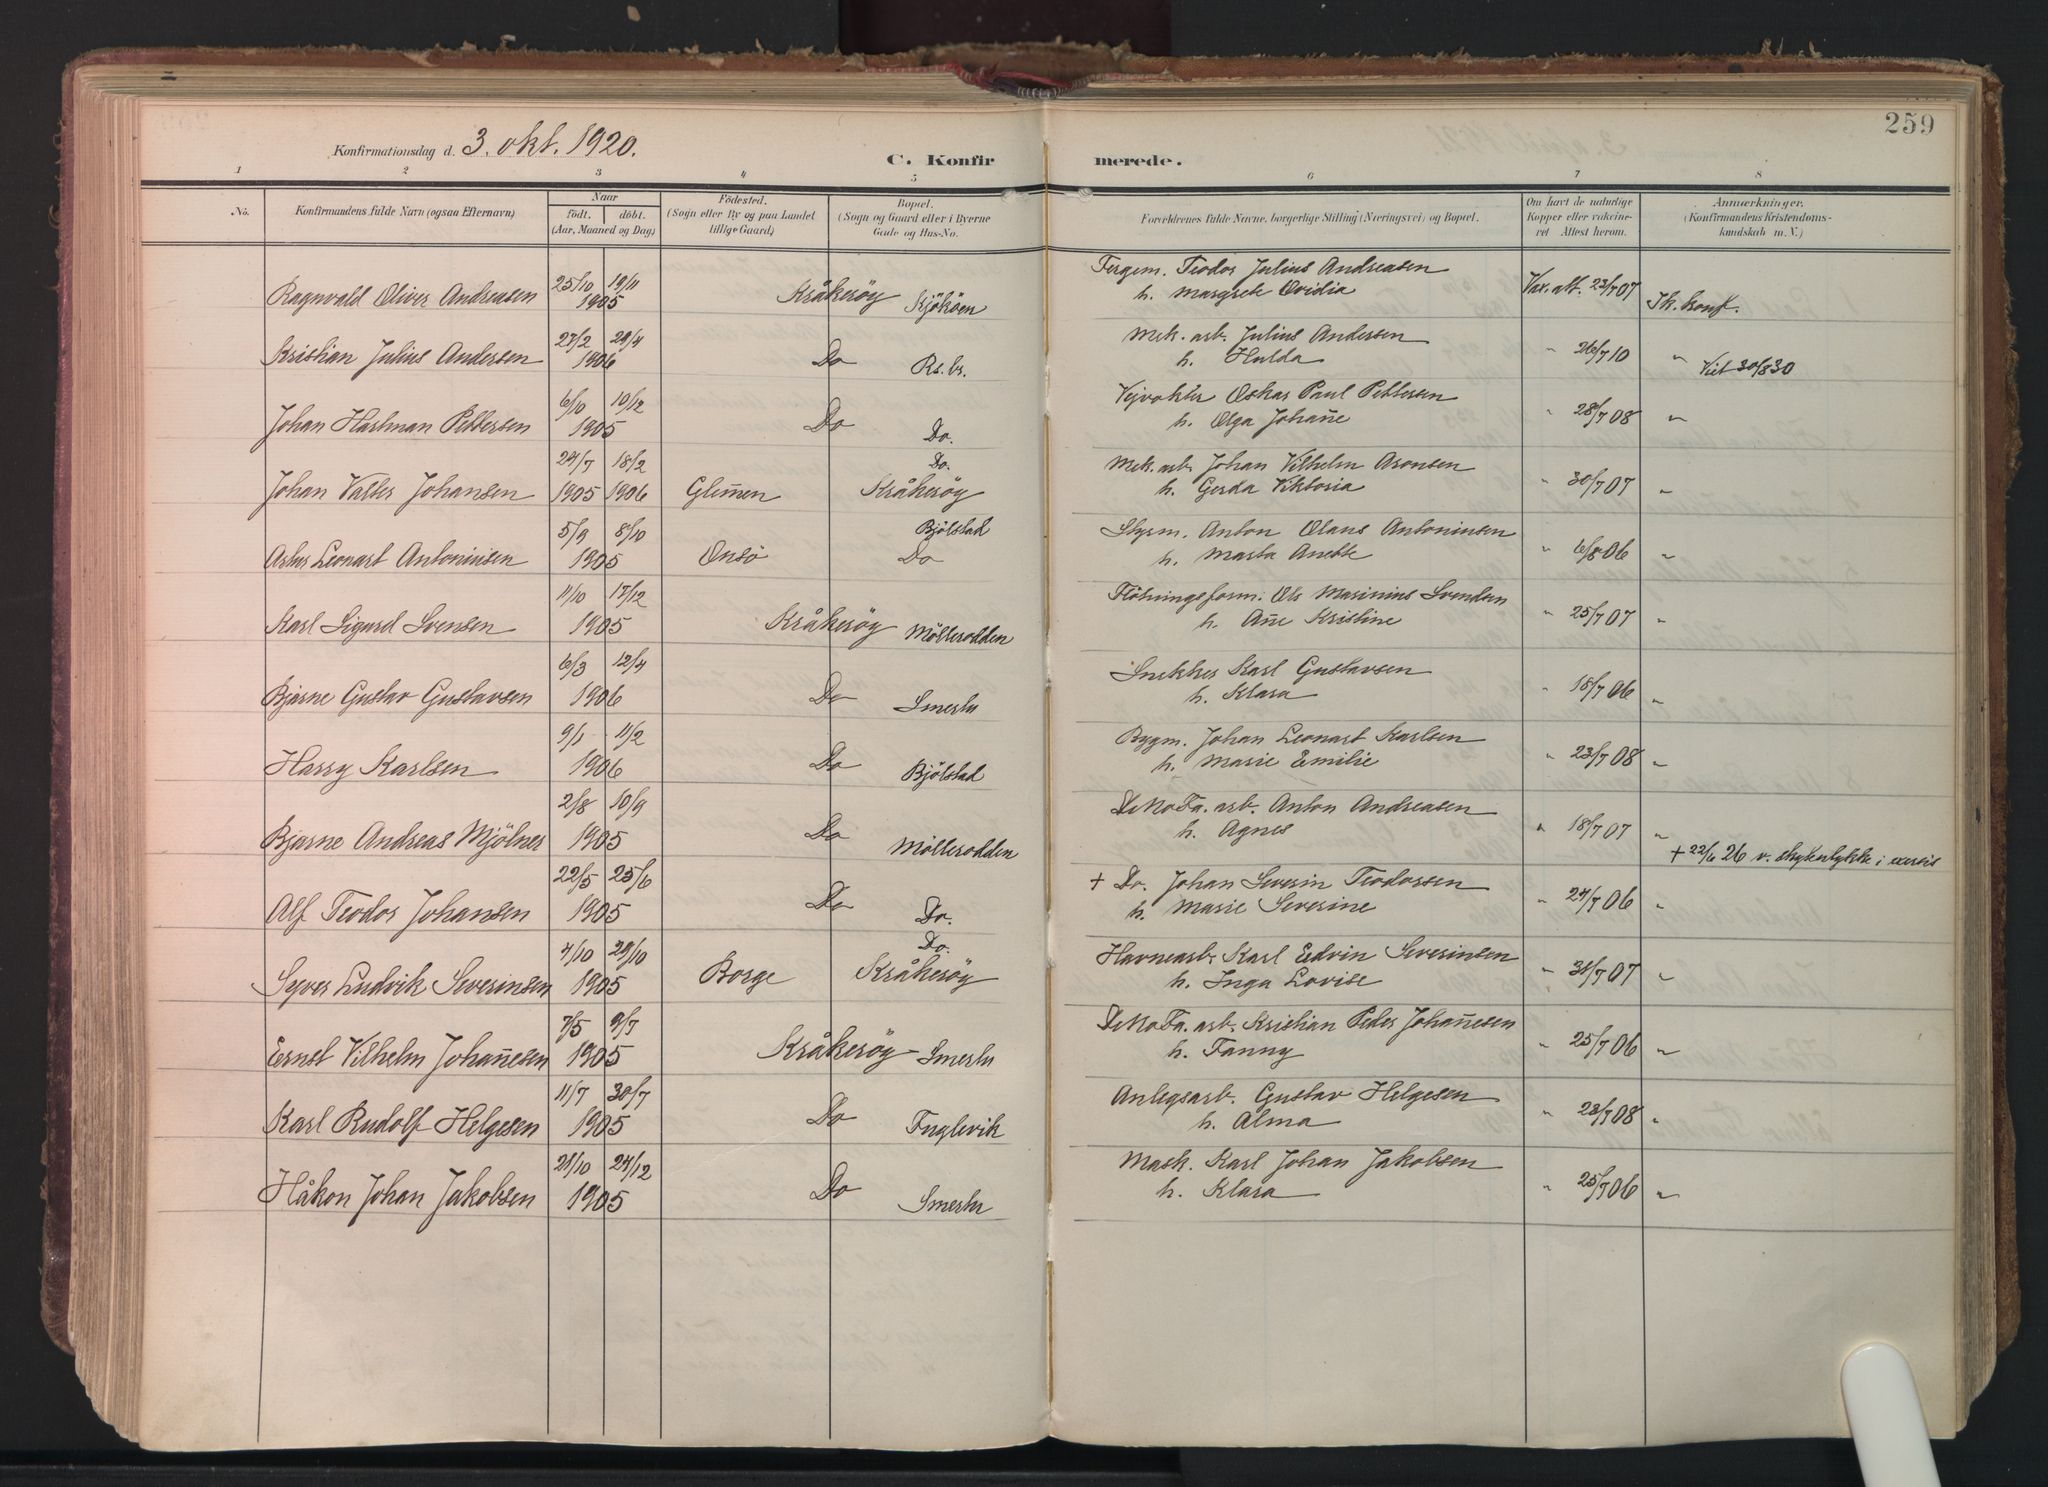 259
Konfirmationsdag d. 3. okt. 1920.
C. Konfirmerede.
1 2 3 4 5 6 7 8
No. Konfirmandens fulde Navn (ogsaa Efternavn) Naar født. døbt. (Aar, Maaned og Dag) Fødested. (Sogn eller By og paa Landet tillige Gaard) Bopæl. (Sogn og Gaard eller i Byerne Gade og Hus-No. Forældrenes fulde Navne, borgerlige Stilling (Næringsvei) og Bopæl. Om havt de naturlige Kopper eller vakcineret Attest herom. Anmærkninger. (Konfirmandens Kristendomskundskab m. V.)
Ragnvald Oliver Andreasen 25/10 19/11 1905 Kråkeröy Kjököen Fergem. Teodor Julius Andreasen h. Margrete Ovidia Vax. att. 23/7 07 Tk. konf.
Kristian Julius Andersen 27/2 29/4 1906 Do Rs. br. Mek. arb. Julius Andersen h. Hulda " 26/7 10 " Viet 30/8 30
Johan Hartman Pettersen 6/10 10/12 1905 Do Do. Vejvokter Oskar Paul Pettersen h. Olga Johan̄e " 28/7 08 "
Johan Valter Johansen 24/7 1905 18/2 1906 Glem̄en Do. Kråkeröy Mek. arb. Johan Vilhelm Aronsen h. Gerda Viktoria " 30/7 07 "
Astus Leonart Antoninsen 5/9 8/10 1905 Onsö Bjölstad Do Styrm. Anton Olaus Antoninsen h. Marta Anette " 6/8 06 "
Karl Sigurd Svensen 11/10 17/12 1905 Kråkeröy Mölleroddden Flötningsform. Ole Marinius Svendsen h. An̄e Kristine " 25/7 07 "
Bjarne Gustav Gustavsen 6/3 12/4 1906 Do Smertu Snekker Karl Gustavsen h. Klara " 18/7 06 "
Harry Karlsen 9/1 11/2 1906 Do Bjölstad Bygm. Johan Leonart Karlsen h. Marie Emilie " 23/7 08 "
Bjarne Andreas Mjölner 2/8 10/9 1905 Do Mölleroddden DeNoFa. arb. Anton Andreasen h. Agnes " 18/7 07 " + 22/6 26 v. skyteulykke i exersis
Alf Teodor Johansen 22/5 25/6 1905 Do Do. + Do. Johan Severin Teodorsen h. Marie Severine " 24/7 06 "
Syver Ludvik Severinsen 4/10 29/10 1905 Borge Do. Kråkeröy Havnearb. Karl Edvin Severinsen h. Inga Lovise " 31/7 07 "
Ernst Vilhelm Johan̄esen 7/5 9/7 1905 Kråkeröy Smertu DeNoFa. arb. Kristian Peder Johan̄esen h. Fanny " 25/7 06 "
Karl Rudolf Helgesen 11/7 30/7 1905 Do Fuglevik Anlegsarb. Gustav Helgesen h. Alma " 23/7 08 "
Håkon Johan Jakobsen 21/10 24/12 1905 Do Smertu Mask. Karl Johan Jakobsen h. Klara " 25/7 06 "